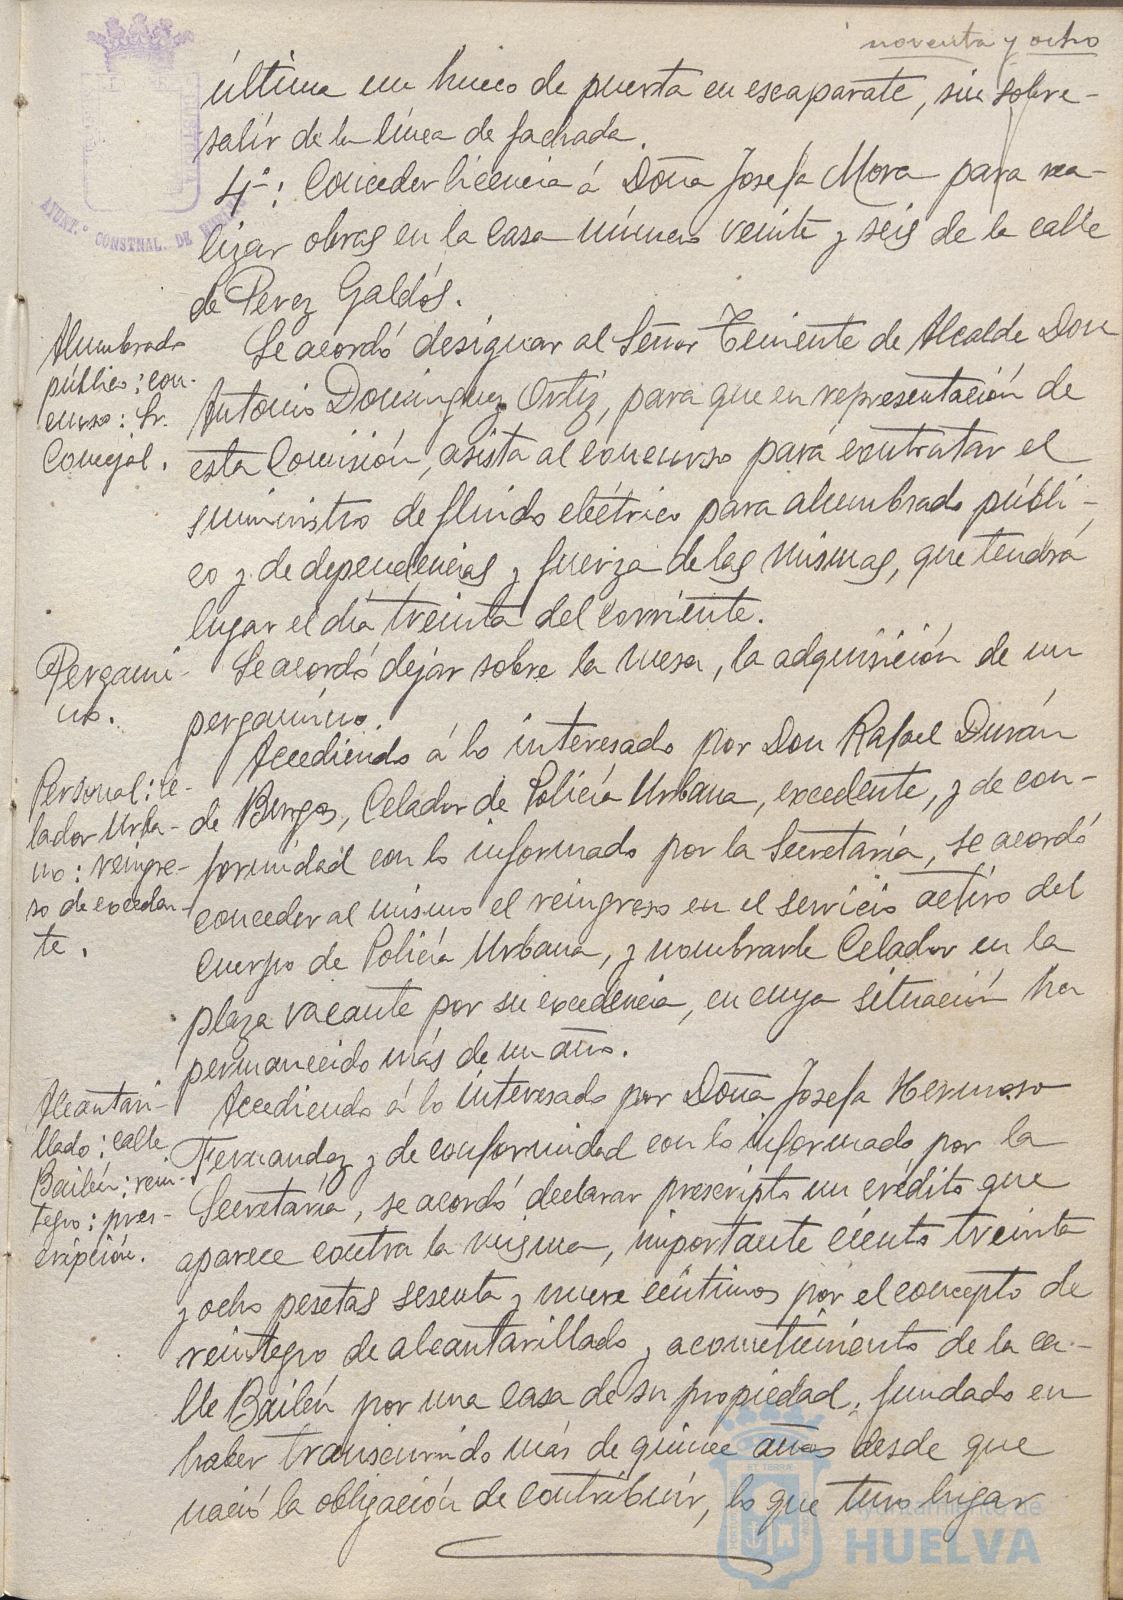 noventa y ocho
última un hueco de puerta en escaparate, sin sobre-
salir de la línea de fachada.
4º: Conceder licencia á Doña Josefa Mora para rea-
lizar obras en la casa número veinte y seis de la calle
de Perez Galdós.
Alumbrado
público: con-
curso: Sr.
Concejal.
Se acordó designar al Señor Teniente de Alcalde Don
Antonio Dominguez Ortiz, para que en representación de
esta Comisión, asista al concurso para contratar el
suministro de fluido eléctrico para alumbrado públi-
co y de dependencias y fuerza de las mismas, que tendrá
lugar el día treinta del corriente.
Pergami-
no.
Se acordó dejar sobre la mesa, la adquisición de un
pergamino.
Personal: ce-
lador Urba-
no: reingre-
so de exceden-
te.
Accediendo á lo interesado por Don Rafael Durán
de Burgos, Celador de Policía Urbana, excedente, y de con-
formidad con lo informado por la Secretaría, se acordó
conceder al mismo el reingreso en el servicio activo del
Cuerpo de Policía Urbana, y nombrarle Celador en la
plaza vacante por su excedencia, en cuya situación ha
permanecido más de un año.
Alcantari-
llado: calle
Bailén: rein-
tegro: pres-
cripción.
Accediendo á lo interesado por Doña Josefa Hermoso
Fernandez y de conformidad con lo informado por la
Secretaría, se acordó declarar prescripto un crédito que
aparece contra la misma, importante ciento treinta
y ocho pesetas sesenta y nueve céntimos por el concepto de
reintegro de alcantarillado y acometimiento de la ca-
lle Bailén por una casa de su propiedad, fundado en
haber transcurrido más de quince años desde que
nació la obligación de contribuir, lo que tuvo lugar
AYUNT.º CONSTNAL. DE
Ayuntamiento de
HUELVA